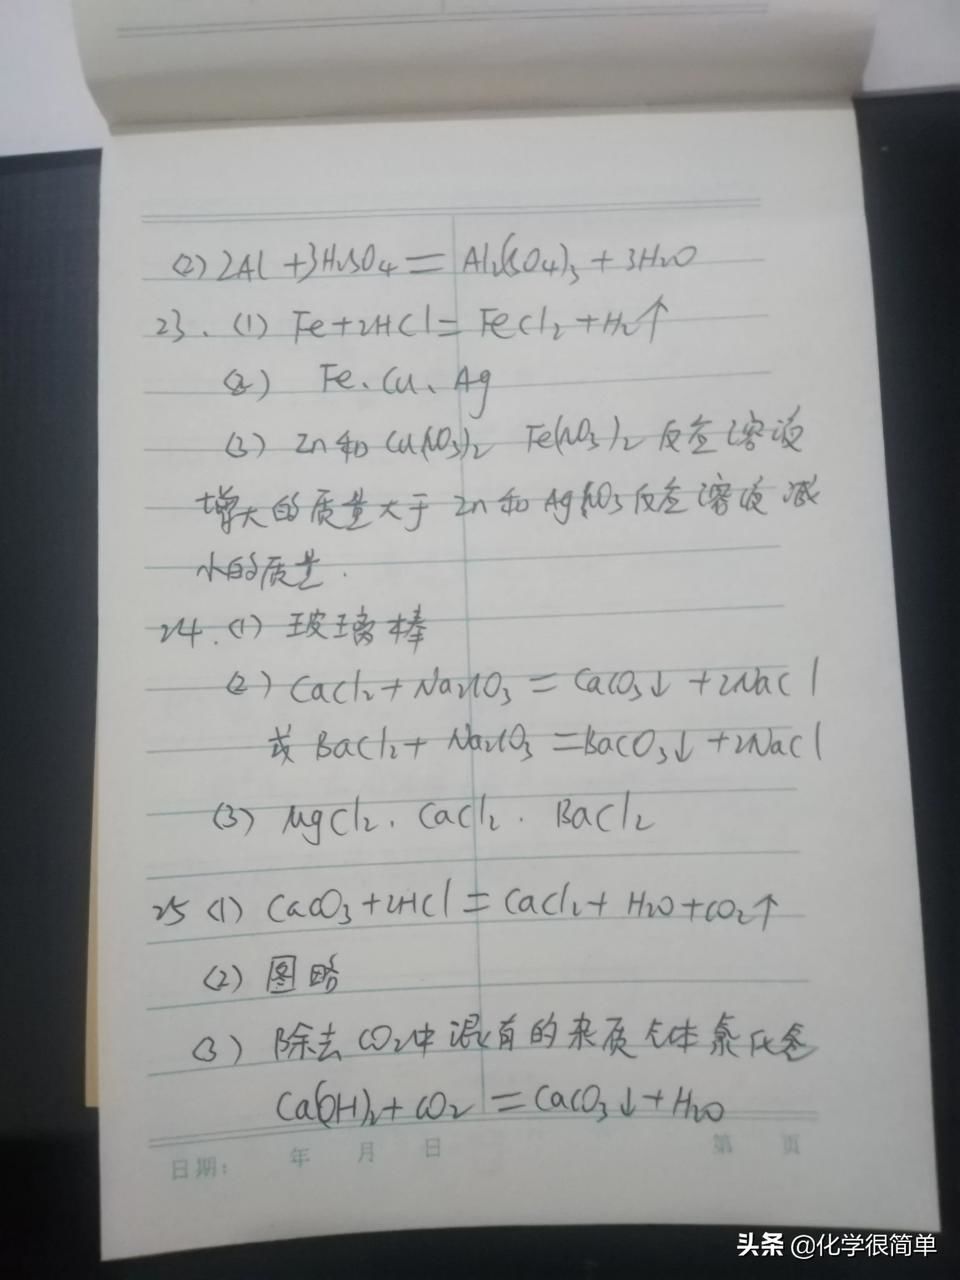 (2) 2Al + 3H₂SO₄ = Al₂(SO₄)₃ + 3H₂O
23. (1) Fe + 2HCl = FeCl₂ + H₂↑
(2) Fe、Cu、Ag
(3) Zn和Cu(NO₃)₂ Fe(NO₃)₂反应溶液
增大的质量大于Zn和AgNO₃反应溶液减
小的质量.
24. (1) 玻璃棒
(2) CaCl₂ + Na₂CO₃ = CaCO₃↓ + 2NaCl
或 BaCl₂ + Na₂CO₃ = BaCO₃↓ + 2NaCl
(3) MgCl₂. CaCl₂. BaCl₂
25 (1) CaCO₃ + 2HCl = CaCl₂ + H₂O + CO₂↑
(2) 图略
(3) 除去CO₂中混有的杂质气体氯化氢
Ca(OH)₂ + CO₂ = CaCO₃↓ + H₂O
日期: 年 月 日 第 页
头条 @化学很简单